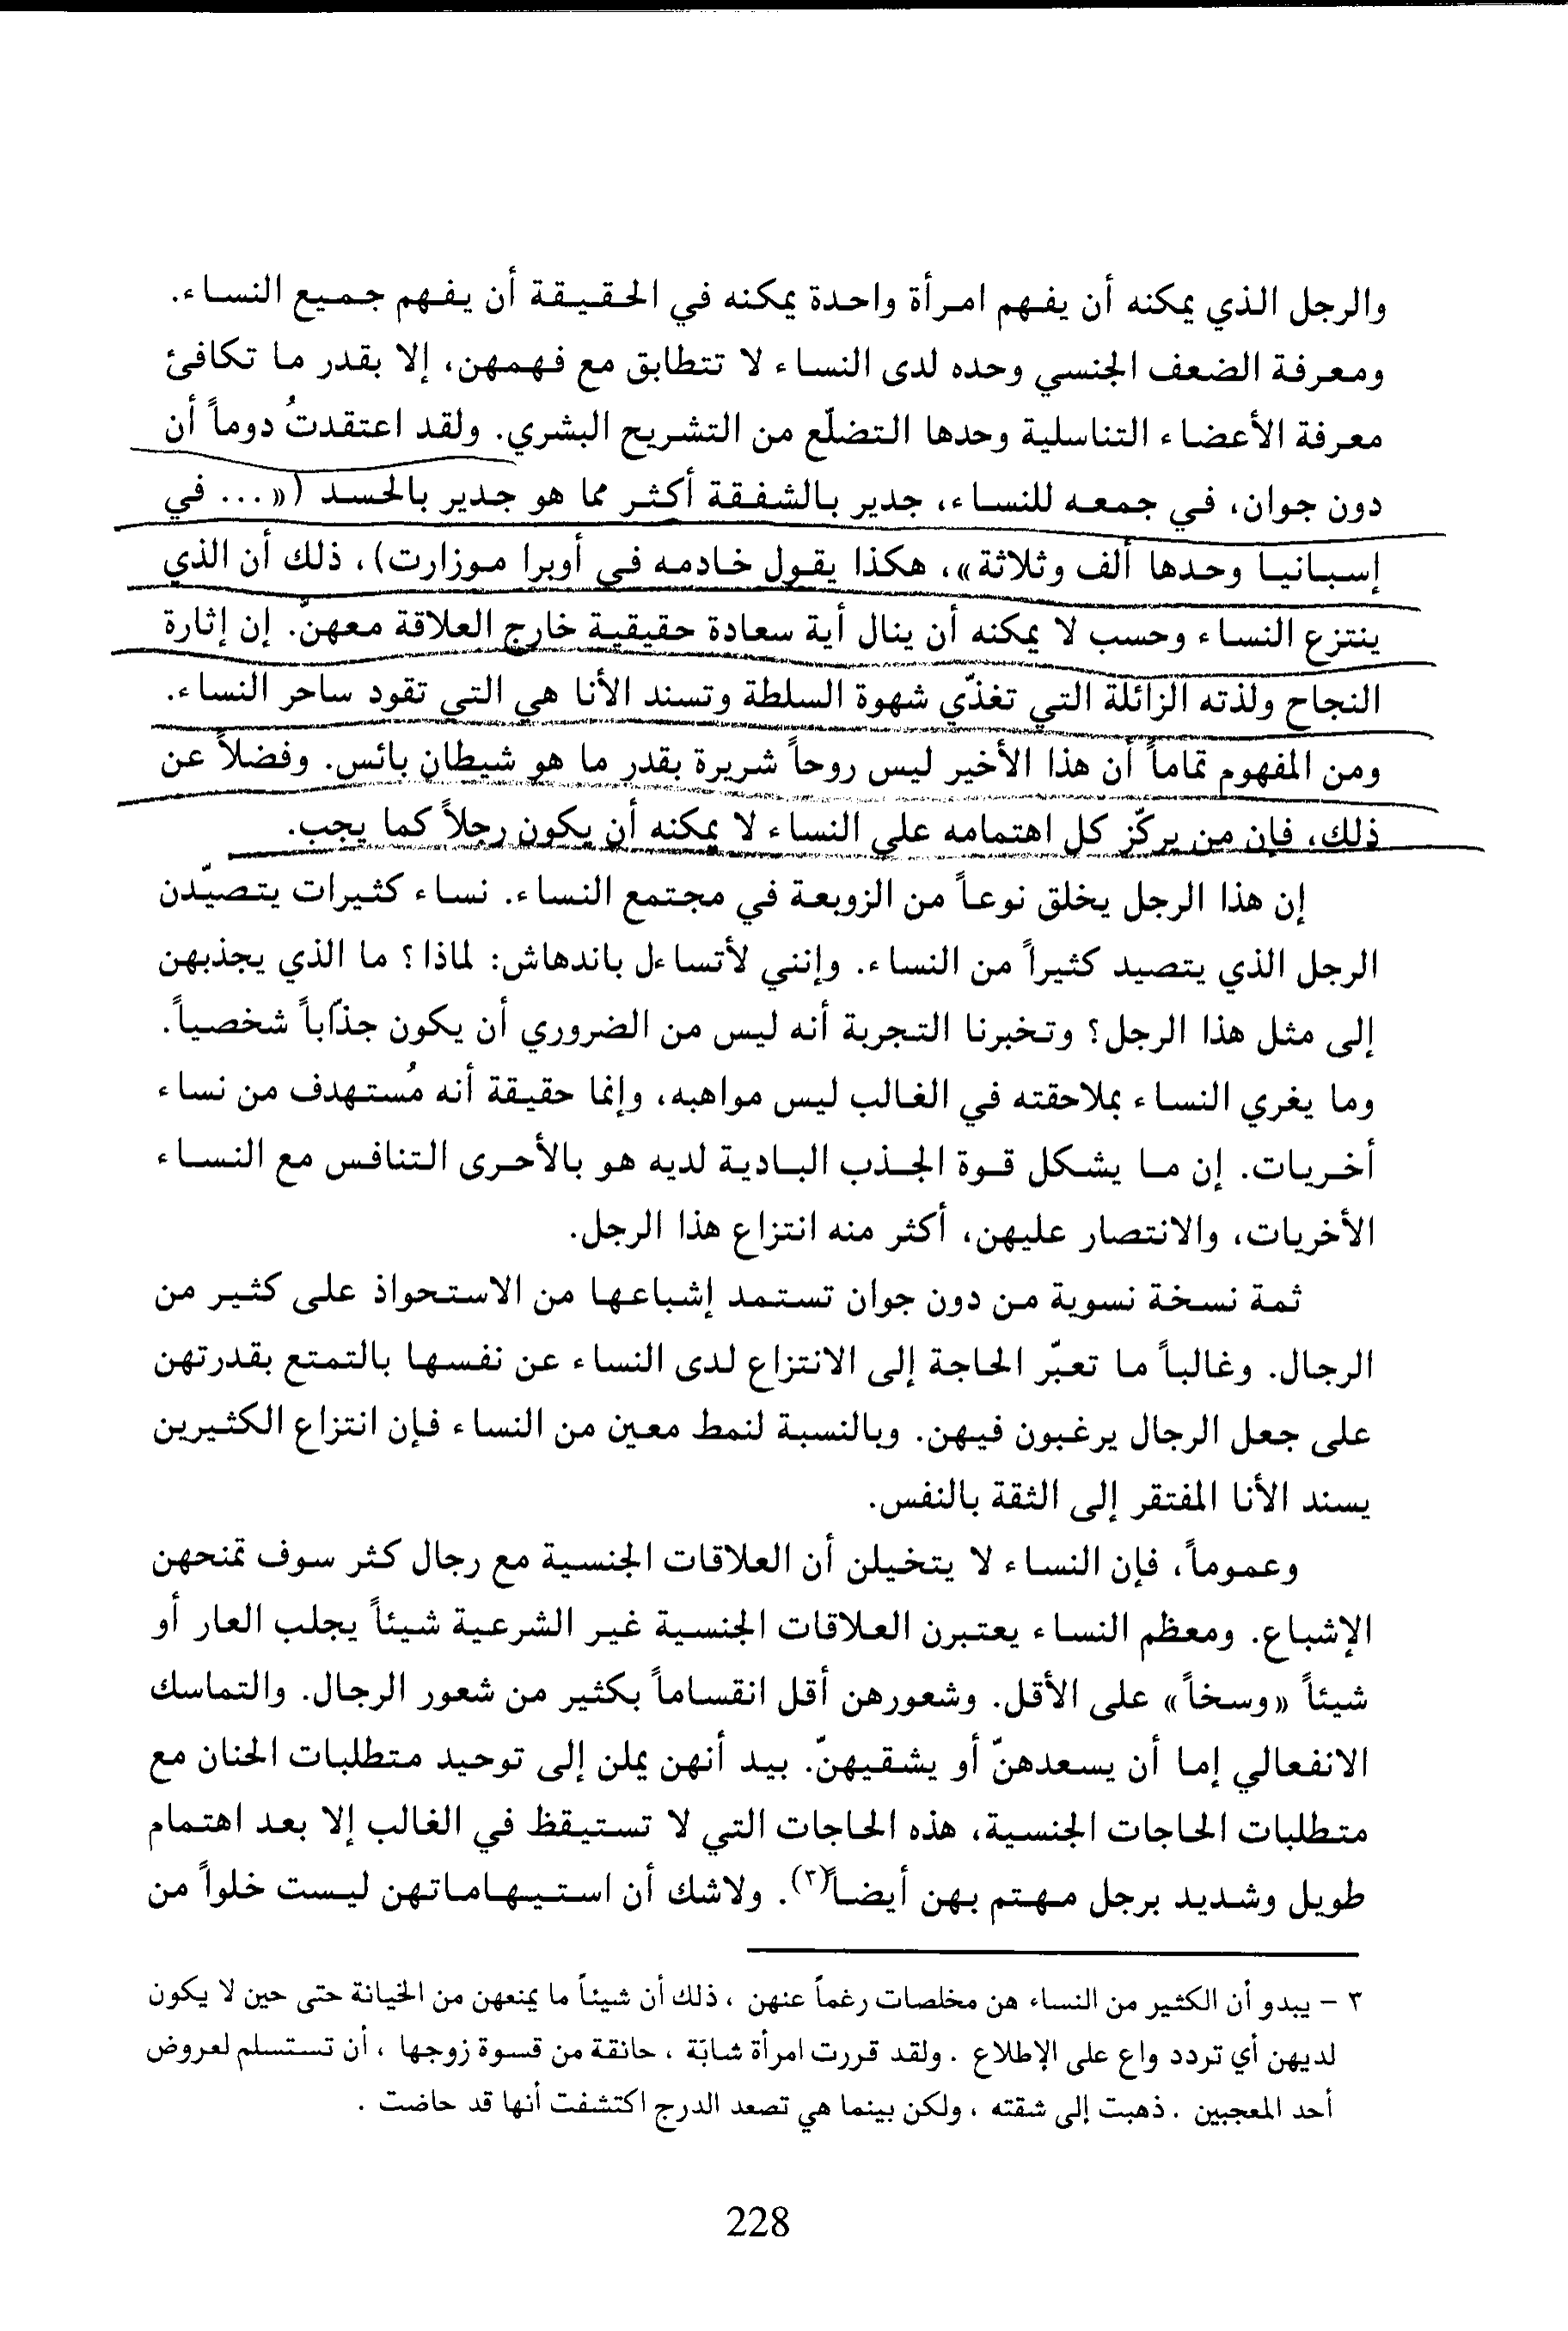 والرجل الذي يمكنه أن يفهم امرأة واحدة يمكنه في الحقيقة أن يفهم جميع النساء.
ومعرفة الضعف الجنسي وحده لدى النساء لا تتطابق مع فهمهن، إلا بقدر ما تكافئ
معرفة الأعضاء التناسلية وحدها التضلّع من التشريح البشري. ولقد اعتقدتُ دوماً أن
دون جوان، في جمعه للنساء، جدير بالشفقة أكثر مما هو جدير بالحسد («... في
إسبانيا وحدها ألف وثلاثة»، هكذا يقول خادمه في أوبرا موزارت)، ذلك أن الذي
ينتزع النساء وحسب لا يمكنه أن ينال أية سعادة حقيقية خارج العلاقة معهنّ. إن إثارة
النجاح ولذته الزائلة التي تغذّي شهوة السلطة وتسند الأنا هي التي تقود ساحر النساء.
ومن المفهوم تماماً أن هذا الأخير ليس روحاً شريرة بقدر ما هو شيطان بائس. وفضلاً عن
ذلك، فإن من يركّز كل اهتمامه على النساء لا يمكنه أن يكون رجلاً كما يجب.
إن هذا الرجل يخلق نوعاً من الزوبعة في مجتمع النساء. نساء كثيرات يتصيّدن
الرجل الذي يتصيد كثيراً من النساء. وإنني لأتساءل باندهاش: لماذا؟ ما الذي يجذبهن
إلى مثل هذا الرجل؟ وتخبرنا التجربة أنه ليس من الضروري أن يكون جذّاباً شخصياً.
وما يغري النساء بملاحقته في الغالب ليس مواهبه، وإنما حقيقة أنه مُستهدف من نساء
أخريات. إن ما يشكل قوة الجذب البادية لديه هو بالأحرى التنافس مع النساء
الأخريات، والانتصار عليهن، أكثر منه انتزاع هذا الرجل.
ثمة نسخة نسوية من دون جوان تستمد إشباعها من الاستحواذ على كثير من
الرجال. وغالباً ما تعبّر الحاجة إلى الانتزاع لدى النساء عن نفسها بالتمتع بقدرتهن
على جعل الرجال يرغبون فيهن. وبالنسبة لنمط معين من النساء فإن انتزاع الكثيرين
يسند الأنا المفتقر إلى الثقة بالنفس.
وعموماً، فإن النساء لا يتخيلن أن العلاقات الجنسية مع رجال كثر سوف تمنحهن
الإشباع. ومعظم النساء يعتبرن العلاقات الجنسية غير الشرعية شيئاً يجلب العار أو
شيئاً «وسخاً» على الأقل. وشعورهن أقل انقساماً بكثير من شعور الرجال. والتماسك
الانفعالي إما أن يسعدهنّ أو يشقيهنّ. بيد أنهن يملن إلى توحيد متطلبات الحنان مع
متطلبات الحاجات الجنسية، هذه الحاجات التي لا تستيقظ في الغالب إلا بعد اهتمام
طويل وشديد برجل مهتم بهن أيضاً(٣). ولاشك أن استيهاماتهن ليست خلواً من
٣ – يبدو أن الكثير من النساء هن مخلصات رغماً عنهن ، ذلك أن شيئاً ما يمنعهن من الخيانة حتى حين لا يكون
لديهن أي تردد واع على الإطلاع . ولقد قررت امرأة شابّة ، حانقة من قسوة زوجها ، أن تستسلم لعروض
أحد المعجبين . ذهبت إلى شقته ، ولكن بينما هي تصعد الدرج اكتشفت أنها قد حاضت .
228